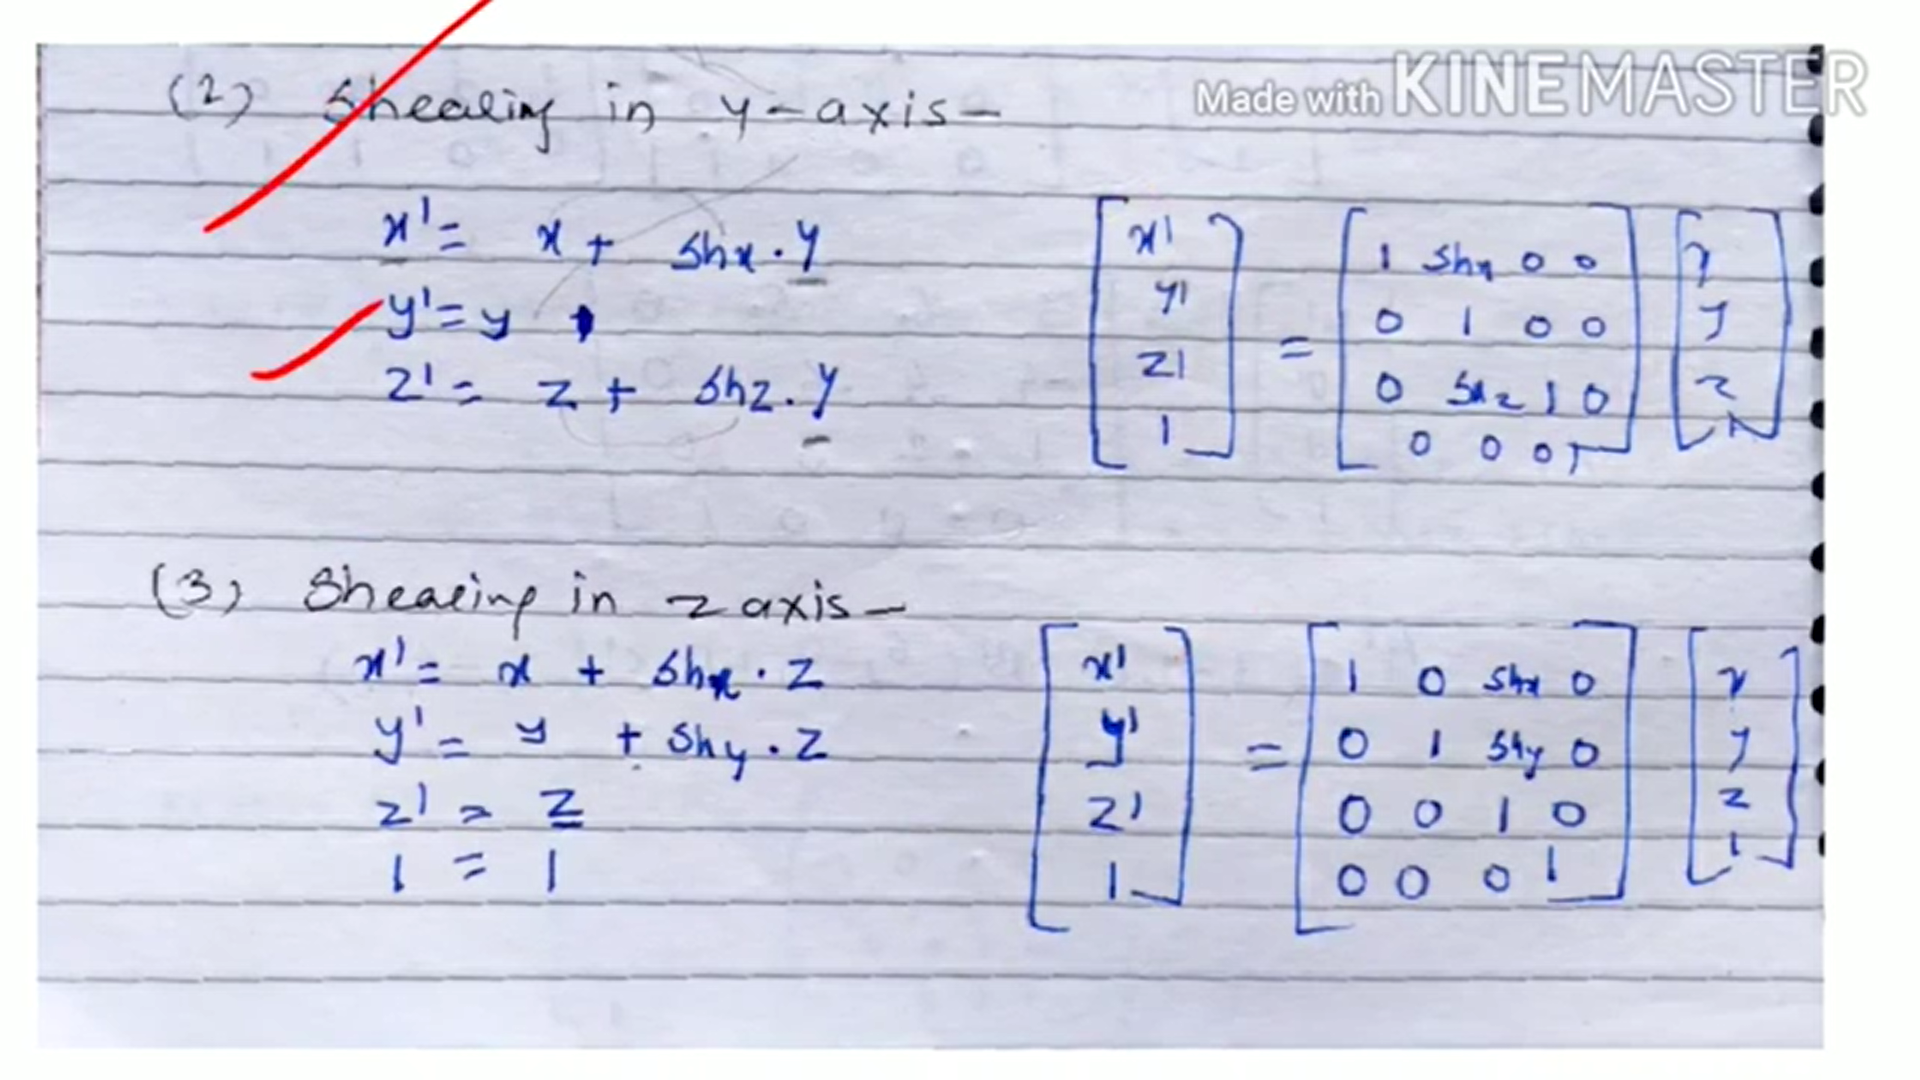 Made with KINEMASTER
(2) Shearing in y-axis-
x' = x + shx . y
y' = y
z' = z + shz . y
[x' y' z' 1] = [1 shx 0 0
0 1 0 0
0 shz 1 0
0 0 0 1] [x y z 1]
(3) Shearing in z axis-
x' = x + shx . z
y' = y + shy . z
z' = z
1 = 1
[x' y' z' 1] = [1 0 shx 0
0 1 shy 0
0 0 1 0
0 0 0 1] [x y z 1]